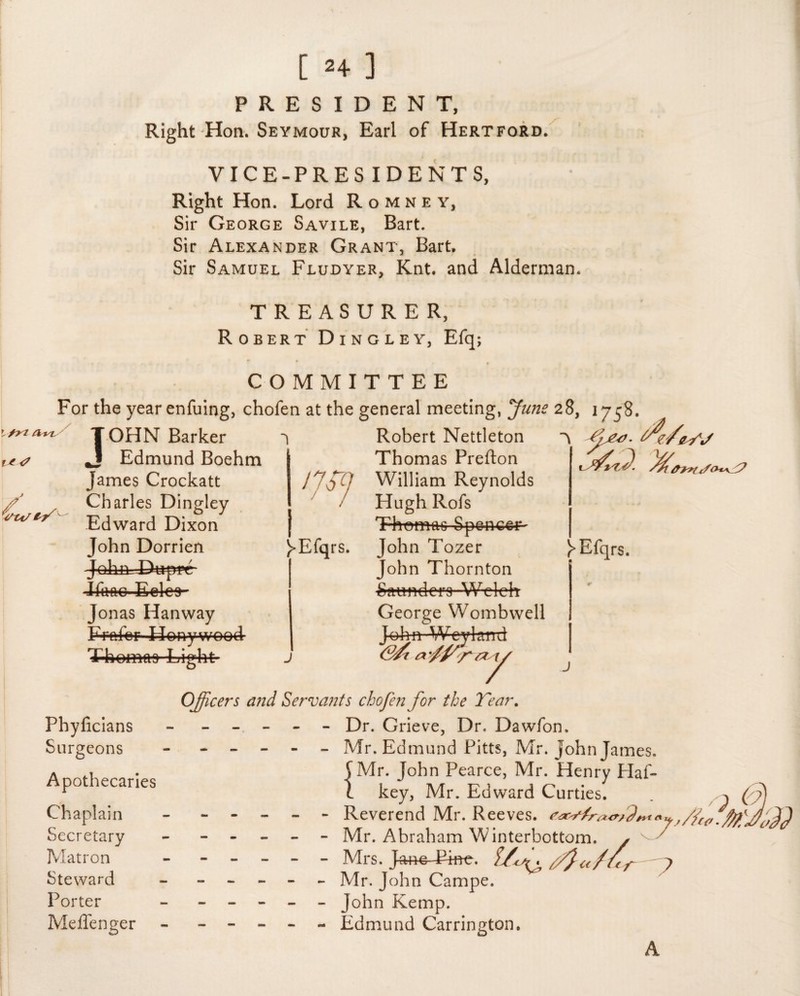 [ 24 ]
PRESIDENT,
Right Hon. SEYMOUR, Earl of HERTFORD.
VICE-PRESIDENTS,
Right Hon. Lord ROMNEY,
Sir GEORGE SAVILE, Bart.
Sir ALEXANDER GRANT, Bart.
Sir SAMUEL FLUDYER, Knt. and Alderman.
TREASURER,
ROBERT DINGLEY, Eſq;
COMMITTEE
For the year enſuing, choſen at the general meeting, June 28, 1758.
JOHN Barker
Edmund Boehm
James Crockatt
Charles Dingley
Edward Dixon
John Dorrien
John Dupré
Iſaac Eeles
Jonas Hanway
Fraſer Honywood
Thomas Light
1759
Eſqrs.
Robert Nettleton
Thomas Preſton
William Reynolds
Hugh Roſs
Thomas Spencer
John Tozer
John Thornton
Saunders Welch
George Wombwell
John Weyland
Geo. Peters
And. Thomson
Eſqrs.
Officers and Servants choſen for the Year.
Phyſicians - - - - - - Dr. Grieve, Dr. Dawſon.
Surgeons - - - - - - Mr. Edmund Pitts, Mr. John James.
Apothecaries { Mr. John Pearce, Mr. Henry Haſ-
key, Mr. Edward Curties.
Chaplain - - - - - - Reverend Mr. Reeves.
Secretary - - - - - - Mr. Abraham Winterbottom.
Matron - - - - - - Mrs. Jane Pine. Butler
Steward - - - - - - Mr. John Campe.
Porter - - - - - - John Kemp.
Meſſenger - - - - - - Edmund Carrington.
A